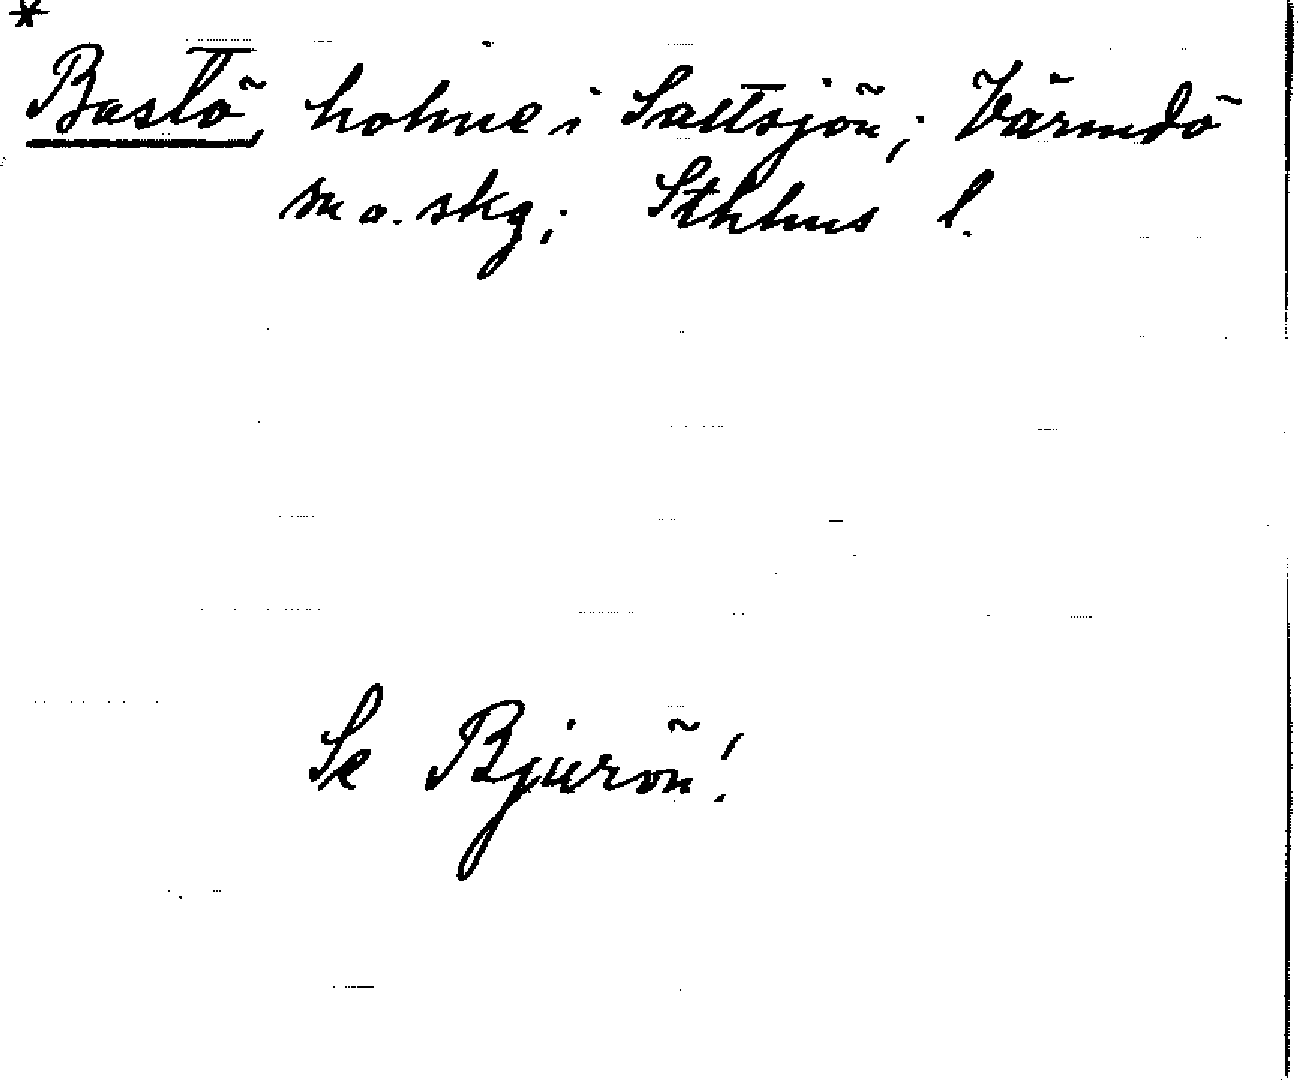 *
Bastö, holme i Saltsjön; Värmdö
sn o. skg; Sthlms l.
Se Bjurön!